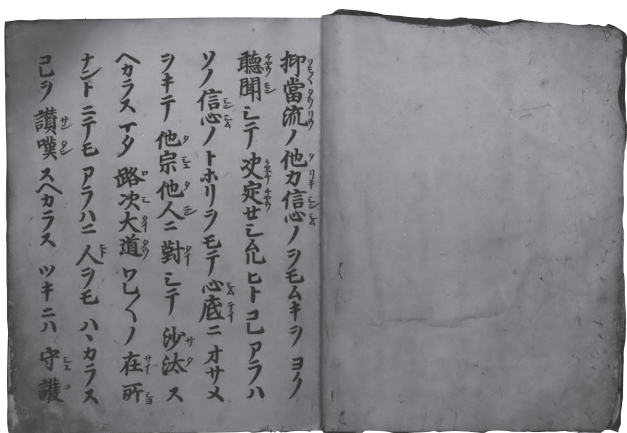 抑當流ノ他力信心ノヲモムキヲヨク
聽聞シテ決定セシムルヒトコレアラハ
ソノ信心ノトホリヲモテ心底ニオサメ
ヲキテ他宗他人ニ對シテ沙汰ス
ヘカラスマタ路次大道ワレ〳〵ノ在所
ナントニテモアラハニ人ヲモハヽカラス
コレヲ讃嘆スヘカラスツキニハ守護